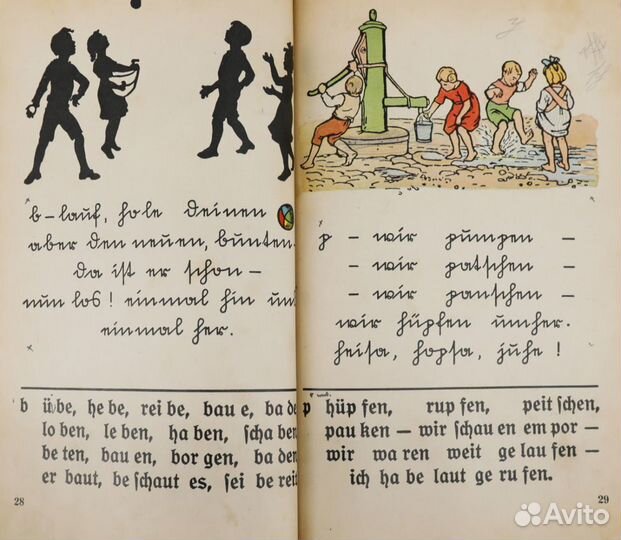 b-lauf, hole deinen
aber den neuen, bunten.
da ist er schon –
nun los! einmal hin und
einmal her.
b übe, he be, rei be, bau e, ba de
lo ben, le ben, ha ben, ſcha ben
be ten, bau en, bor gen, ba den
er baut, be ſchaut es, ſei be reit
28
p – wir pumpen –
– wir patschen –
– wir panschen –
wir hüpfen umher.
heisa, hopsa, juhe!
p hüp fen, rup fen, peit ſchen,
pau ken – wir ſchau en em por –
wir wa ren weit ge lau fen –
ich ha be laut ge ru fen.
29
Avito